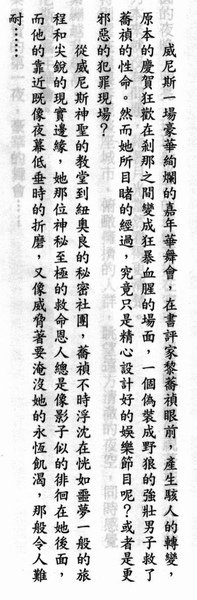 威尼斯一場豪華絢爛的嘉年華舞會，在書評家黎蕃禎眼前，產生駭人的轉變，
原本的慶賀狂歡在剎那之間變成狂暴血腥的場面，一個偽裝成野狼的強壯男子救了
蕃禎的性命。然而她所目睹的經過，究竟只是精心設計好的娛樂節目呢？或者是更
邪惡的犯罪現場？
從威尼斯神聖的教堂到紐奧良的秘密社團，蕃禎不時浮沈在恍如噩夢一般的旅
程和尖銳的現實邊緣，她那位神秘至極的救命恩人總是像影子似的徘徊在她後面，
而他的靠近既像夜幕低垂時的折磨，又像威脅著要淹沒她的永恆飢渴，那般令人難
耐……